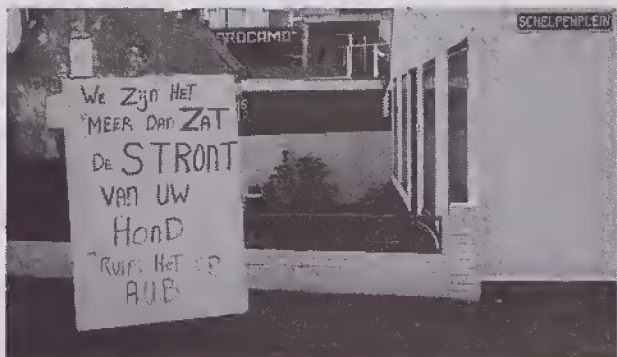 SCHELPENPLEIN
We Zijn Het
MEER DAN ZAT
De STRONT
VAN UW
HonD
RUIM HeT OP
A.U.B